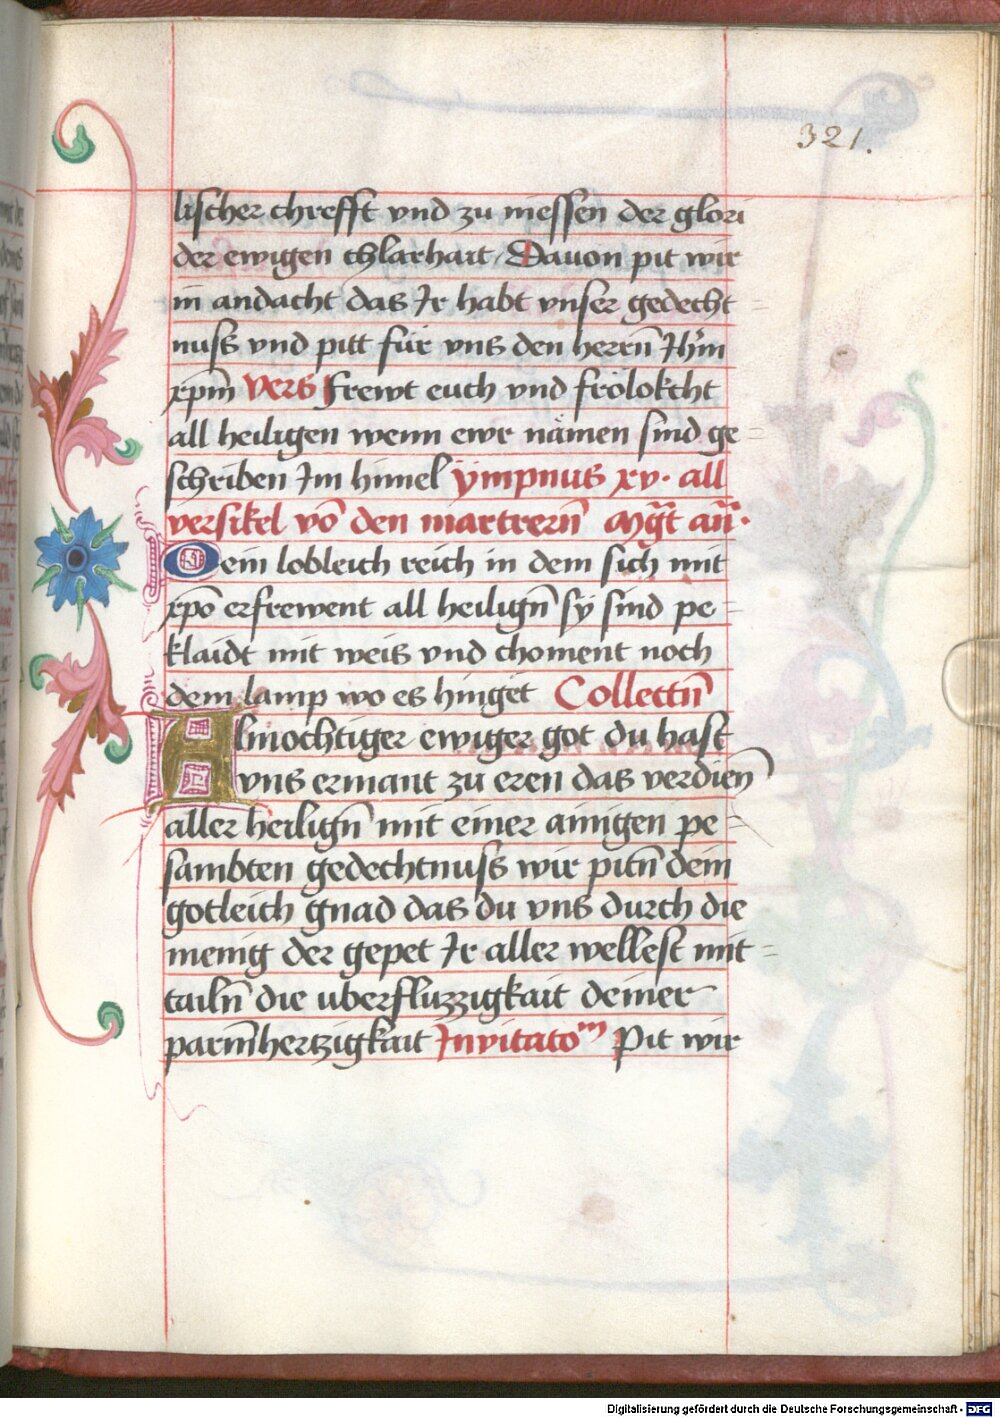 321.
lischer chrefft vnd zu niessen der glori
der ewigen chlarhait / Dauon pit wir
in andacht das Ir habt vnser gedecht=
nuss vnd pitt für vns den herrn̄ Ih̄m
xp̄m Vers Frewt euch vnd frölokcht
all heiligen wenn ewr nämen sind ge=
schriben Im himel ympnus xv. all
versikel vō den martrern̄ Mḡt an̄.
O ein lobleich reich in dem sich mit
xp̄o erfrewent all heilign̄ sy sind pe=
klaidt mit weis vnd choment noch
dem lamp wo es hinget Collectn̄
Almochtiger ewiger got du hast
vns ermant zu eren das verdien̄
aller heilign̄ mit einer ainigen pe=
sambten gedechtnuss wir pitn̄ dein
gotleich gnad das du vns durch die
menig der gepet Ir aller wellest mit=
tailn̄ die uberfluzzigkait deiner
parm̄hertzigkait Inuitatoᵐ Pit wir
Digitalisierung gefördert durch die Deutsche Forschungsgemeinschaft - DFG